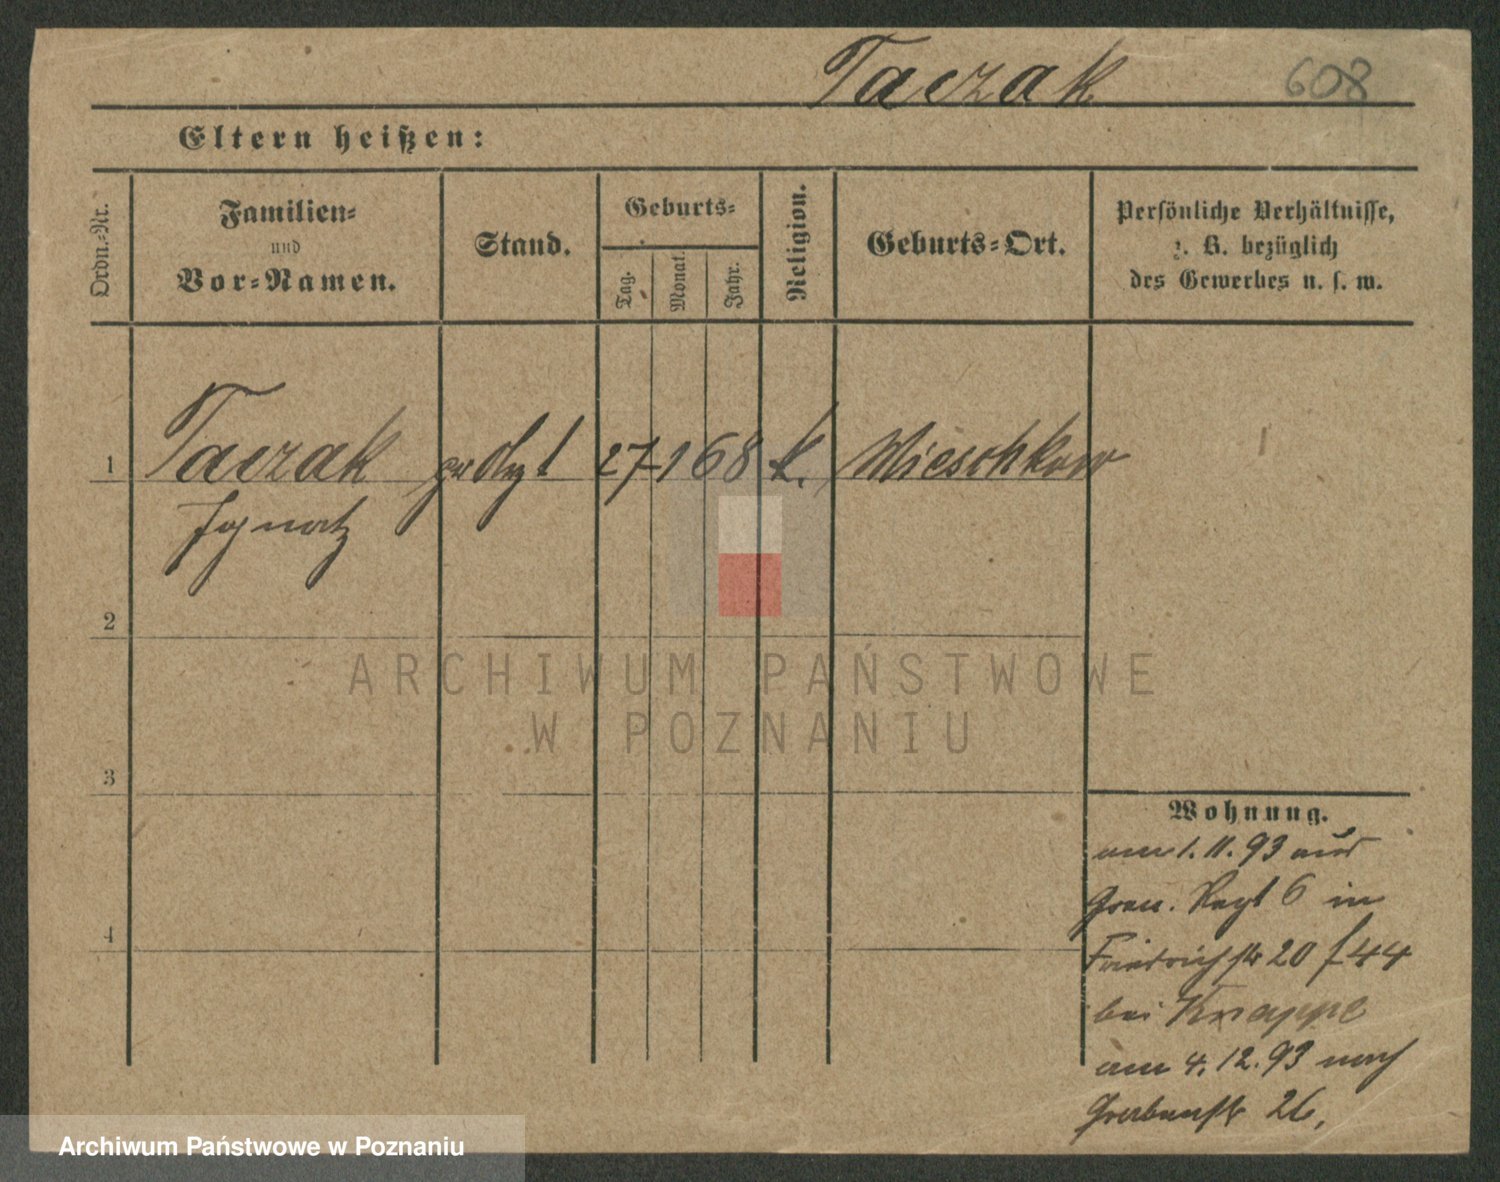 Taczak 608
Eltern heißen:
Ordn.-Nr.
Familien-
und
Vor-Namen.
Stand.
Geburts-
Tag.
Monat.
Jahr.
Religion.
Geburts-Ort.
Persönliche Verhältnisse,
z. B. bezüglich
des Gewerbes u. s. w.
1 Taczak pr Arzt 27 1 68 k. Mieschkow
Ignatz
2
3
4
Wohnung.
am 1. 11. 93 aus
Gren. Regt 6 in
Friedrichstr 20 f 44
bei Knappe
am 4. 12. 93 nach
Grabenstr 26.
ARCHIWUM PAŃSTWOWE
W POZNANIU
Archiwum Państwowe w Poznaniu